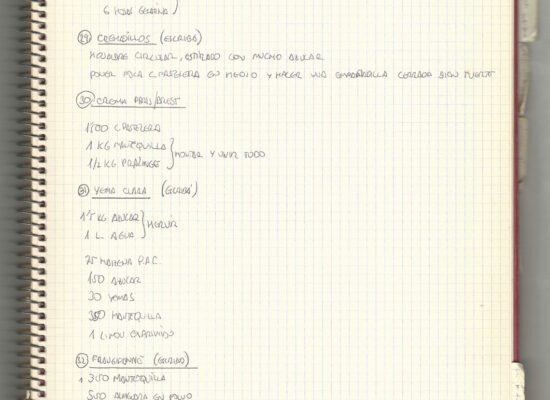 6 HOJAS GELATINA)
29) CREMADILLOS (ESCRIBÀ)
HOJALDRE CIRCULAR, ESTIRADO CON MUCHO AZUCAR
PONER POCA C. PASTELERA EN MEDIO Y HACER UNA EMPANADILLA CERRADA BIEN FUERTE
30) CREMA PARIS/BREST
1'500 C. PASTELERA
1 KG MANTEQUILLA
1/2 KG PRALINGE } MONTAR Y UNIR TODO
31) YEMA CLARA (ESCRIBÀ)
1'5 KG AZUCAR
1 L. AGUA } HERVIR
75 MAIZENA P.A.C.
150 AZUCAR
30 YEMAS
350 MANTEQUILLA
1 LIMON
32)
1 350 MANTEQUILLA
500 ALMENDRA EN POLVO